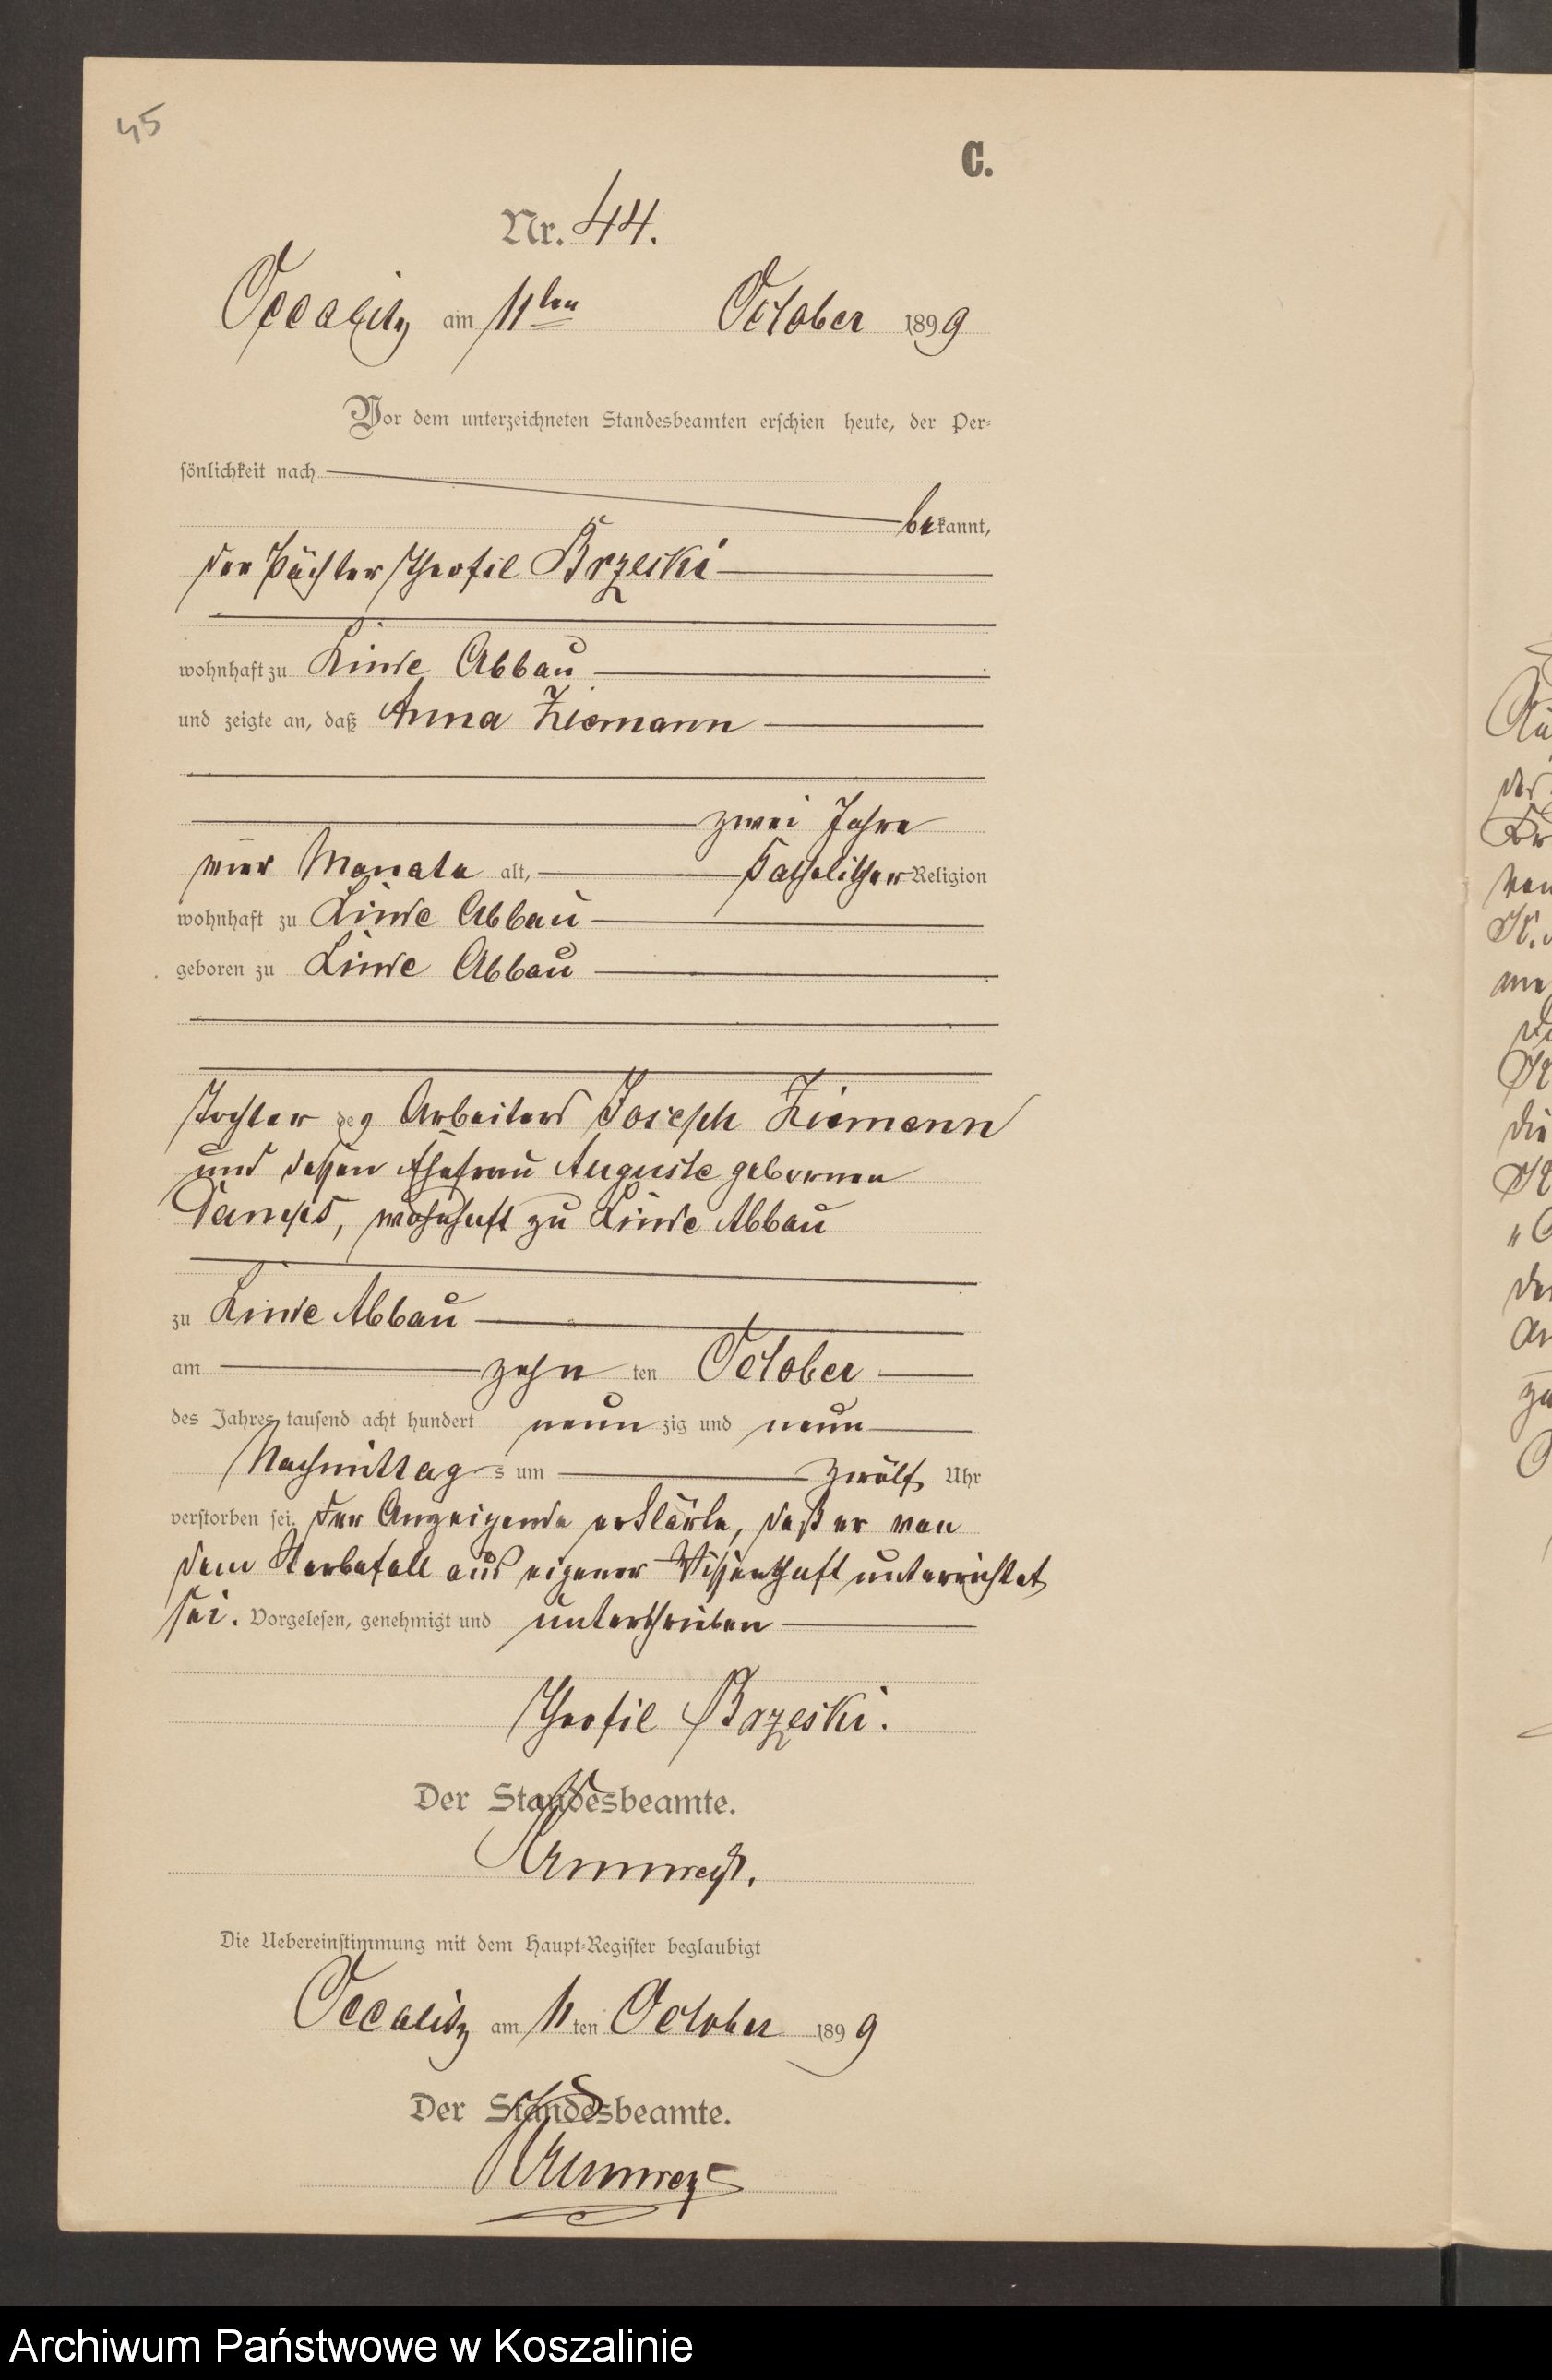 45
C.
Nr. 44.
Occalitz am 11ten October 1899
Vor dem unterzeichneten Standesbeamten erschien heute, der Per-
sönlichkeit nach
bekannt,
der Pächter Theofil Brzeski
wohnhaft zu Linde Abbau
und zeigte an, daß Anna Ziemann
zwei Jahre
vier Monate alt, katholischer Religion
wohnhaft zu Linde Abbau
geboren zu Linde Abbau
Tochter des Arbeiters Joseph Ziemann
und dessen Ehefrau Auguste geborenen
wohnhaft zu Linde Abbau
zu Linde Abbau
am zehn ten October
des Jahres tausend acht hundert neun zig und neun
Nachmittag s um zwölf Uhr
verstorben sei. Der Anzeigende erklärte, daß er von
dem Sterbefall aus eigener Wissenschaft unterrichtet
sei. Vorgelesen, genehmigt und unterschrieben
Theofil Brzeski.
Der Standesbeamte.
Die Uebereinstimmung mit dem Haupt-Register beglaubigt
Occalitz am 11 ten October 1899
Der Standesbeamte.
Archiwum Państwowe w Koszalinie